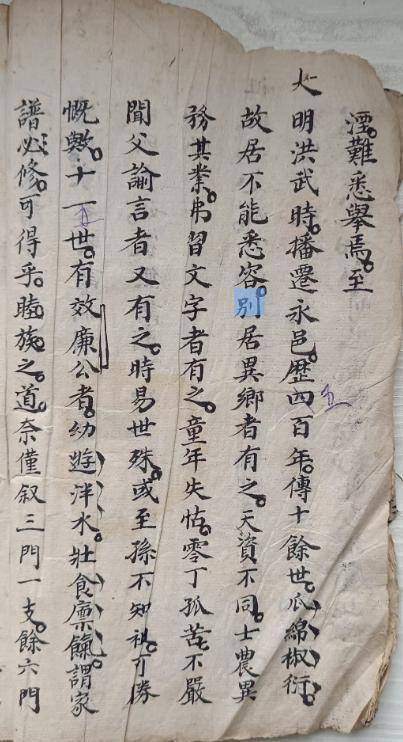 湮。難悉舉焉。至
大明洪武時。播遷永邑。歷四五百年。傳十餘世。瓜綿椒衍。
故居不能悉容。別居異鄉者有之。天資不同。士農異
務其業。弗習文字者有之。童年失怙。零丁孤苦。不嚴
聞父諭言者又有之。時易世殊。或至孫不知祖。可勝
慨歟。十一五世。有效廉公者。幼遊泮水。壯食廪餼。謂家
譜必修。可得乎。睦族之道。奈僅叙三門一支。餘六門